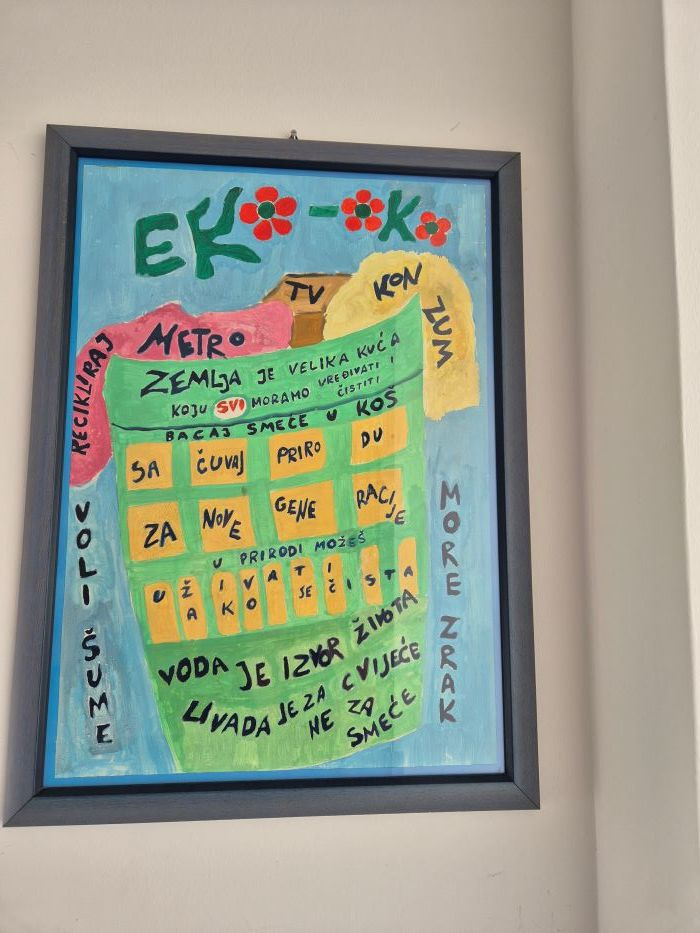 EKO-OKO
TV
KON
ZUM
METRO
RECIKLIRAJ
ZEMLJA JE VELIKA KUĆA
KOJU SVI MORAMO UREĐIVATI I
ČISTITI
BACAJ SMEĆE U KOŠ
SA ČUVAJ PRIRO DU
ZA NOVE GENE RACIJE
U PRIRODI MOŽEŠ
UŽIVATI
AKO JE ČISTA
VODA JE IZVOR ŽIVOTA
LIVADA JE ZA CVIJEĆE
NE ZA
SMEĆE
VOLI ŠUME
MORE ZRAK